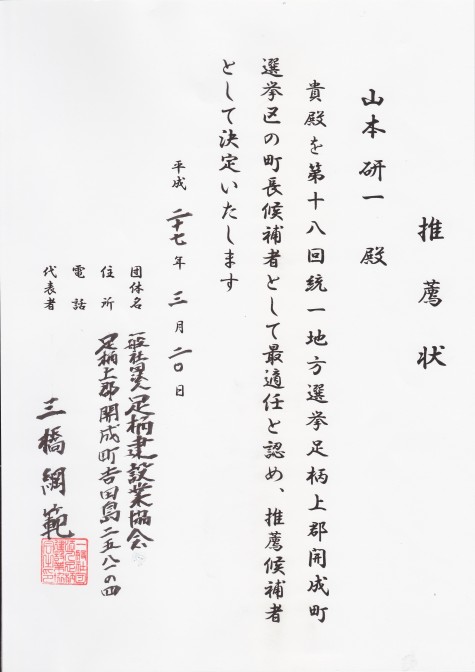 推薦状
山本研一 殿
貴殿を第十八回統一地方選挙足柄上郡開成町
選挙区の町長候補者として最適任と認め、推薦候補者
として決定いたします
平成 二十七 年 三 月 二〇 日
団体名 一般社団法人足柄建設業協会
住所 足柄上郡開成町吉田島二五八一の四
電話
代表者 三橋綱範